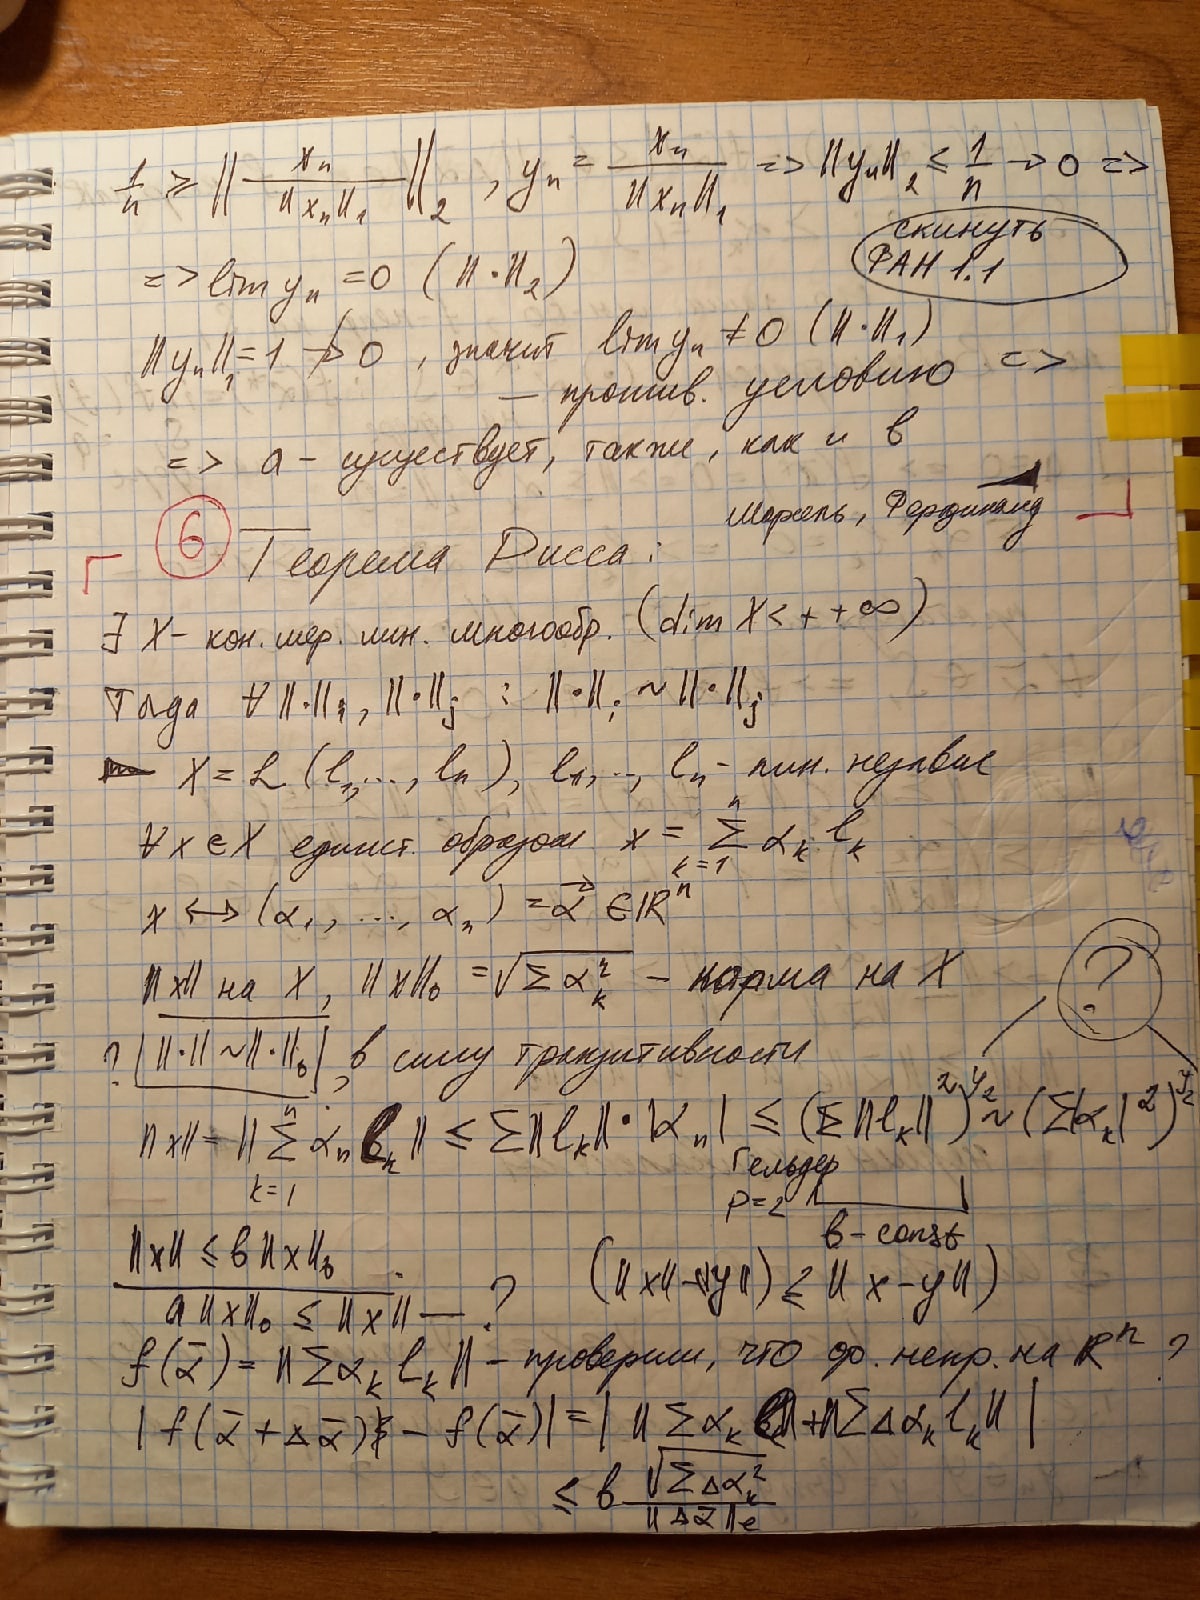 1/n ≥ ‖ xₙ / ‖xₙ‖₁ ‖₂ , yₙ = xₙ / ‖xₙ‖₁ => ‖yₙ‖₂ ≤ 1/n → 0 =>
скинуть
ФАН 1.1
=> lim yₙ = 0 (‖·‖₂)
‖yₙ‖₁ = 1 ↛ 0 , значит lim yₙ ≠ 0 (‖·‖₁)
— против. условию =>
=> a – существует, также, как и в
Марсель, Фердинанд
6 Теорема Рисса:
∃ X – кон. мер. лин. многообр. (dim X < + +∞)
Тогда ∀ ‖·‖i, ‖·‖j : ‖·‖i ~ ‖·‖j
X = L (l₁, ..., ln), l₁, .., ln – лин. независ
∀ x ∈ X единст. образом x = Σ(k=1..n) αk lk
x ↔ (α₁, ..., αn) = α⃗ ∈ ℝⁿ
‖x‖ на X, ‖x‖₀ = √(Σ αk²) – норма на X
?
? |‖·‖ ~ ‖·‖₀| , в силу транзитивности
‖x‖ = ‖ Σ(k=1..n) αn ln ‖ ≤ Σ‖lk‖ · |αn| ≤ (Σ‖lk‖²)^½ ~ (Σ|αk|²)^½
Гельдер
p=2
в – const
‖x‖ ≤ в‖x‖₀
a‖x‖₀ ≤ ‖x‖ — ? (‖x‖ - ‖y‖) ≤ ‖x - y‖)
f(ᾱ) = ‖Σαk lk‖ – проверим, что ф. непр. на Rⁿ ?
| f(ᾱ + Δᾱ) - f(ᾱ)| = | ‖Σαk lk‖ + ‖ΣΔαk lk‖ |
≤ в √(ΣΔαk²)
‖Δᾱ‖e